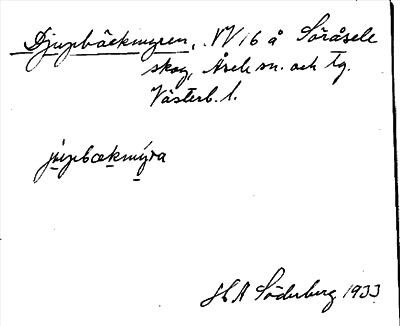 Djupbäckmyren, NV 16 å Söråsele
skog, Åsele sn. och tg.
Västerb. l.
jṷpbækmýra
H A Söderberg 1933